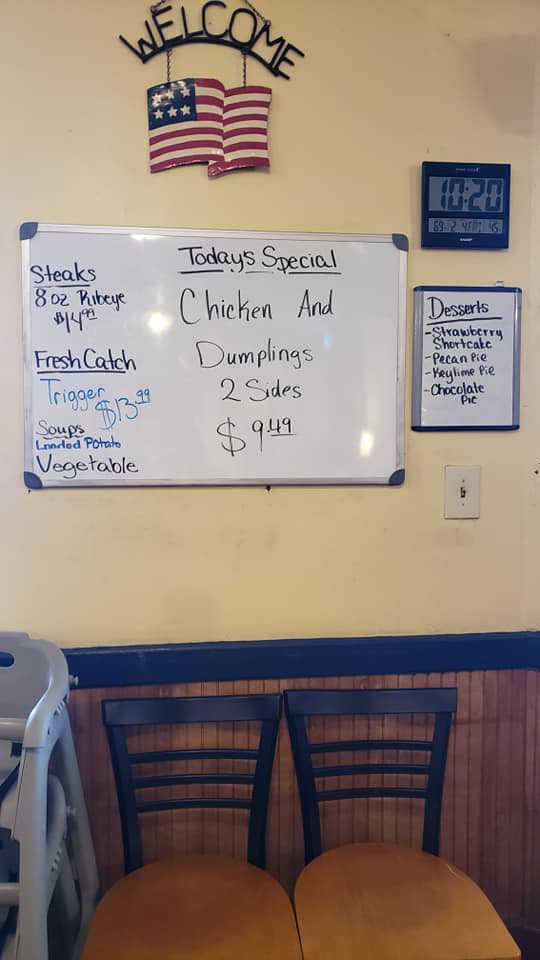 WELCOME
10:20
Todays Special
Steaks
8 oz Ribeye
$14.99
Chicken And
Dumplings
2 Sides
$9.49
Fresh Catch
Trigger
$13.99
Soups
Loaded Potato
Vegetable
Desserts
- Strawberry
Shortcake
- Pecan Pie
- Keylime Pie
- Chocolate
Pie
SHARP